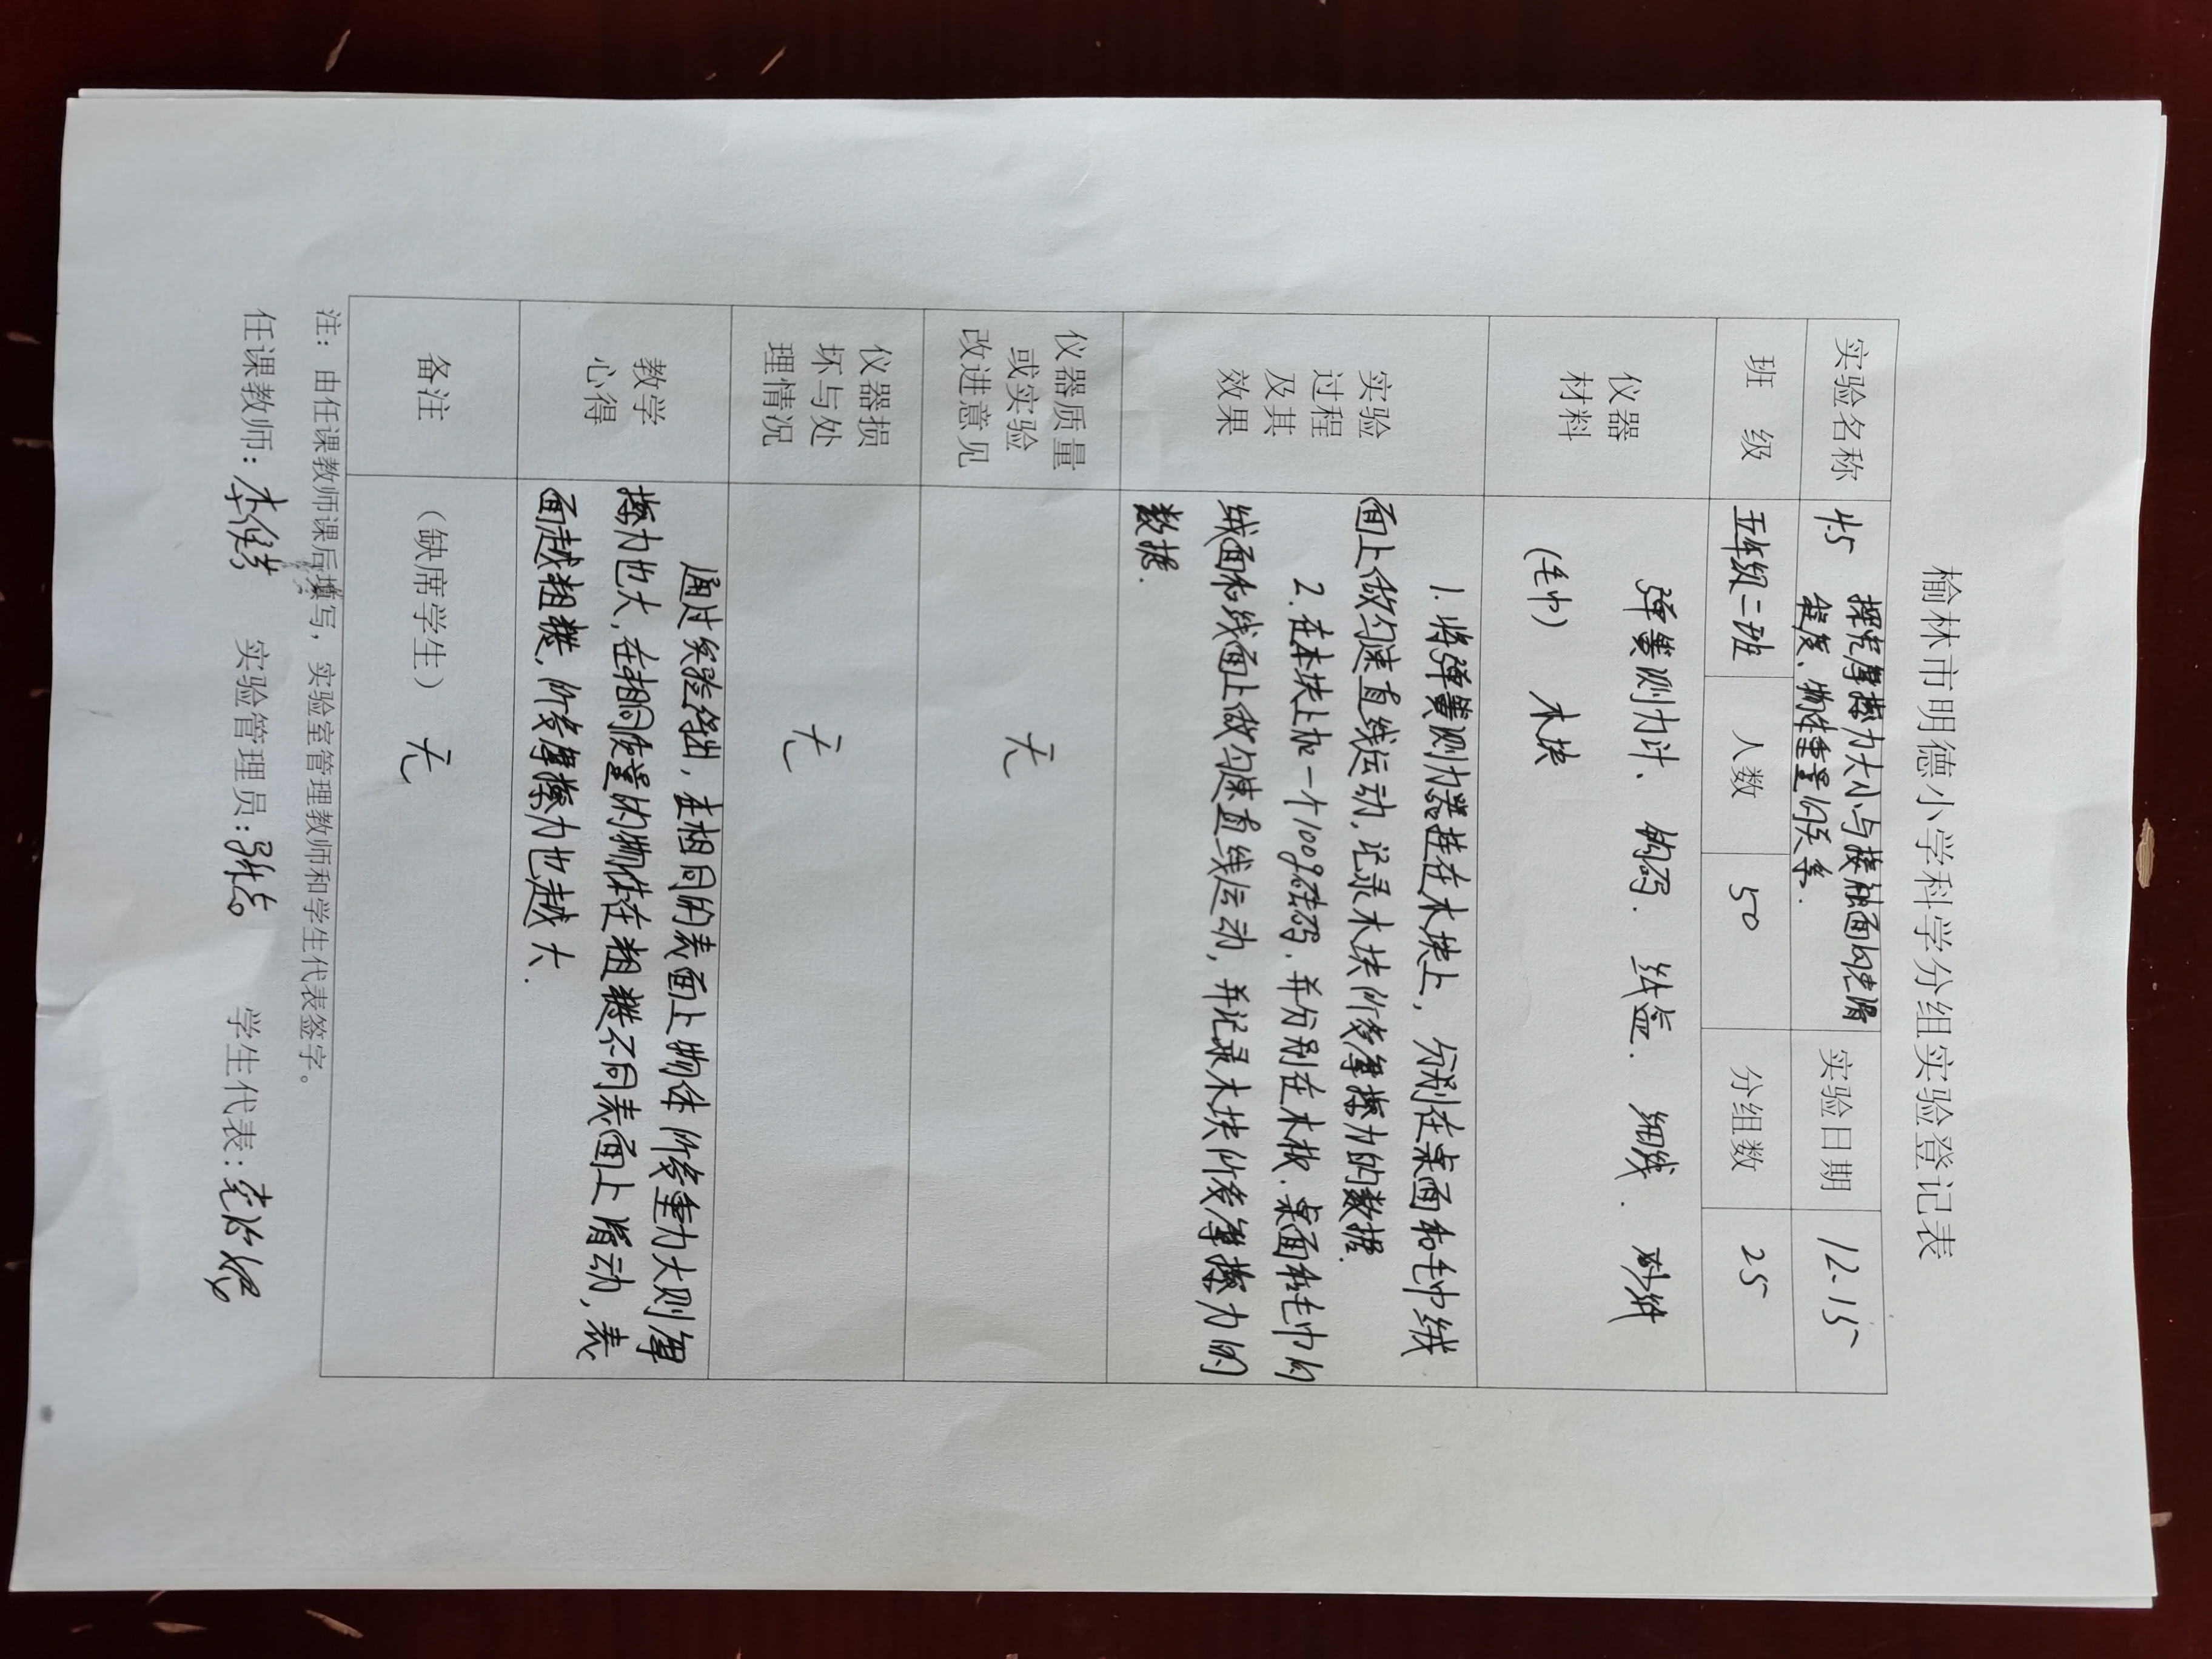 榆林市明德小学科学分组实验登记表
实验名称 45 探究摩擦力大小与接触面的光滑 实验日期 12.15
程度、物体重量的关系.
班 级 五年级二班 人数 50 分组数 25
仪器
材料
弹簧测力计、钩码. 线. 细线. 砂纸
(毛巾) 木块
实验
过程
及其
效果
1.将弹簧测力器挂在木块上,分别在桌面和毛巾绒
面上做匀速直线运动,记录木块所受摩擦力的数据.
2.在木块上加一个100g砝码.并分别在木板.桌面和毛巾的
绒面和线面上做匀速直线运动,并记录木块所受摩擦力的
数据.
仪器质量
或实验
改进意见
无
仪器损
坏与处
理情况
无
教学
心得
通过实验得出,在相同的表面上物体所受重力大则摩
擦力也大,在相同质量的物体在粗糙不同表面上滑动,表
面越粗糙,所受摩擦力也越大.
备注 (缺席学生) 无
注:由任课教师课后填写,实验室管理教师和学生代表签字。
任课教师: 实验管理员: 学生代表: